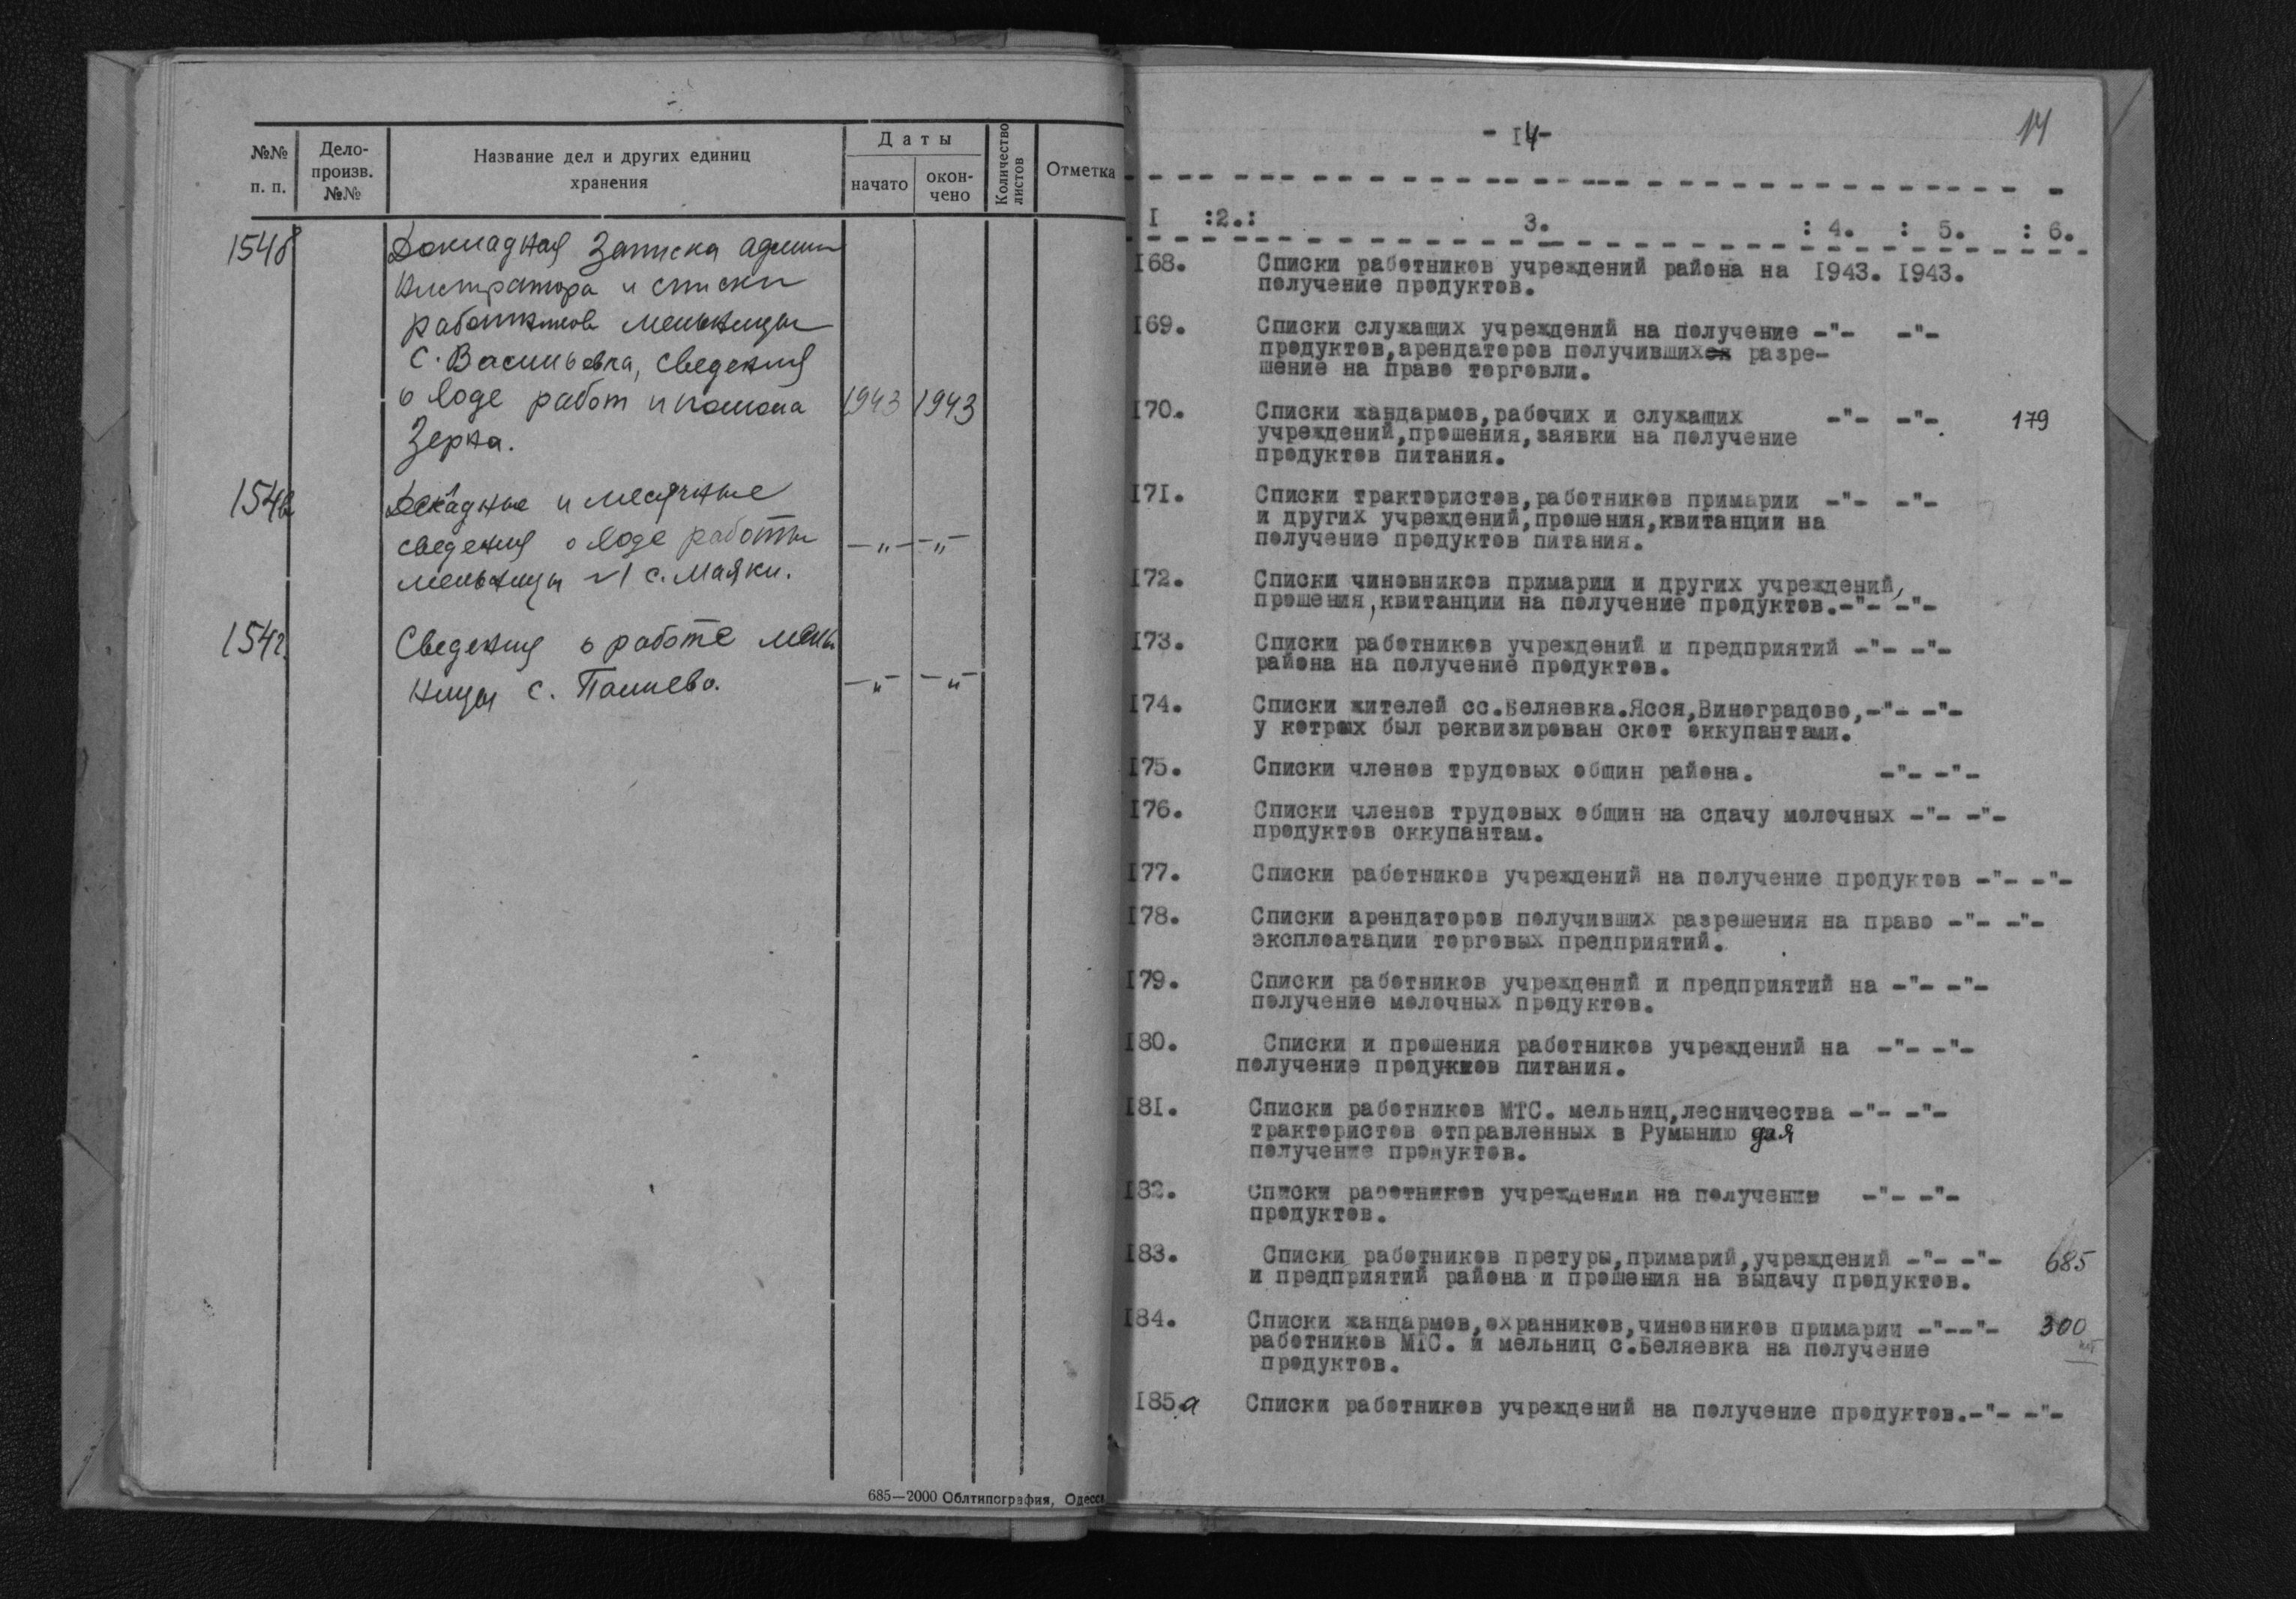 №№ п. п.
Дело-произв. №№
Название дел и других единиц хранения
Даты
начато
окон-чено
Количество листов
Отметка
154б
Докладная записка админи
нистратора и списки
работников мельницы
с. Васильевка, сведения
о ходе работ и помола 1943 1943
зерна.
154в
Декадные и месячные
сведения о ходе работы —"— —"—
мельницы №1 с. Маяки.
154г.
Сведения о работе мель
ницы с. Палиево. —"— —"—
685—2000 Облтипография, Одесса
- 14 -
14
I :2.: 3. : 4. : 5. : 6.
168. Списки работников учреждений района на 1943. 1943.
получение продуктов.
169. Списки служащих учреждений на получение -"- -"-
продуктов,арендаторов получивших разре-
шение на право торговли.
170. Списки жандармов,рабочих и служащих -"- -"- 179
учреждений,прошения,заявки на получение
продуктов питания.
171. Списки трактористов,работников примарии -"- -"-
и других учреждений,прошения,квитанции на
получение продуктов питания.
172. Списки чиновников примарии и других учреждений,
прошения,квитанции на получение продуктов.-"- -"-
173. Списки работников учреждений и предприятий -"- -"-
района на получение продуктов.
174. Списки жителей сс.Беляевка.Ясся,Виноградово,-"- -"-
у котрых был реквизирован скот оккупантами.
175. Списки членов трудовых общин района. -"- -"-
176. Списки членов трудовых общин на сдачу молочных -"- -"-
продуктов оккупантам.
177. Списки работников учреждений на получение продуктов -"- -"-
178. Списки арендаторов получивших разрешения на право -"- -"-
эксплоатации торговых предприятий.
179. Списки работников учреждений и предприятий на -"- -"-
получение молочных продуктов.
180. Списки и прошения работников учреждений на -"- -"-
получение продуктов питания.
181. Списки работников МТС. мельниц,лесничества -"- -"-
трактористов отправленных в Румынию для
получение продуктов.
182. Списки работников учреждении на получение -"- -"-
продуктов.
183. Списки работников претуры,примарий,учреждений -"- -"- 685
и предприятий района и прошения на выдачу продуктов.
184. Списки жандармов,охранников,чиновников примарии -"--"- 300
работников МТС. и мельниц с.Беляевка на получение
продуктов.
185.а Списки работников учреждений на получение продуктов.-"- -"-